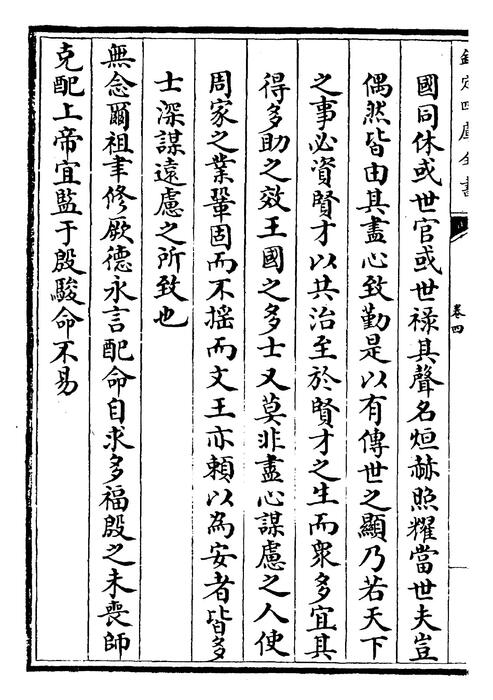 欽定四庫全書
卷四
國同休或世官或世祿其聲名烜赫照耀當世夫豈
偶然皆由其盡心致勤是以有傳世之顯乃若天下
之事必資賢才以共治至於賢才之生而衆多宜其
得多助之效王國之多士又莫非盡心謀慮之人使
周家之業鞏固而不揺而文王亦頼以為安者皆多
士深謀遠慮之所致也
無念爾祖聿修厥德永言配命自求多福殷之未喪師
克配上帝宜監于殷駿命不易